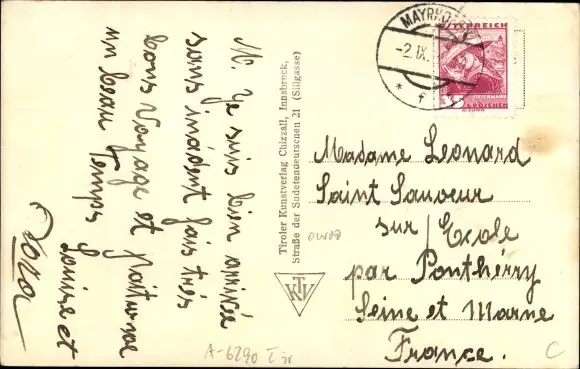 M. Je suis bien arrivée
sans insident fais très
bons Voyage et
un beau Temps
Louise et
Dora
Tiroler Kunstverlag Chizzali, Innsbruck,
Straße der Sudetendeutschen 21 (Sillgasse)
TKV
MAYRHOFEN
-2.IX.
* f
ÖSTERREICH
GROSCHEN
Madame Leonard
Saint Sauveur
sur Ecole
par Ponthérry
Seine et Marne
France.
A-6290
C